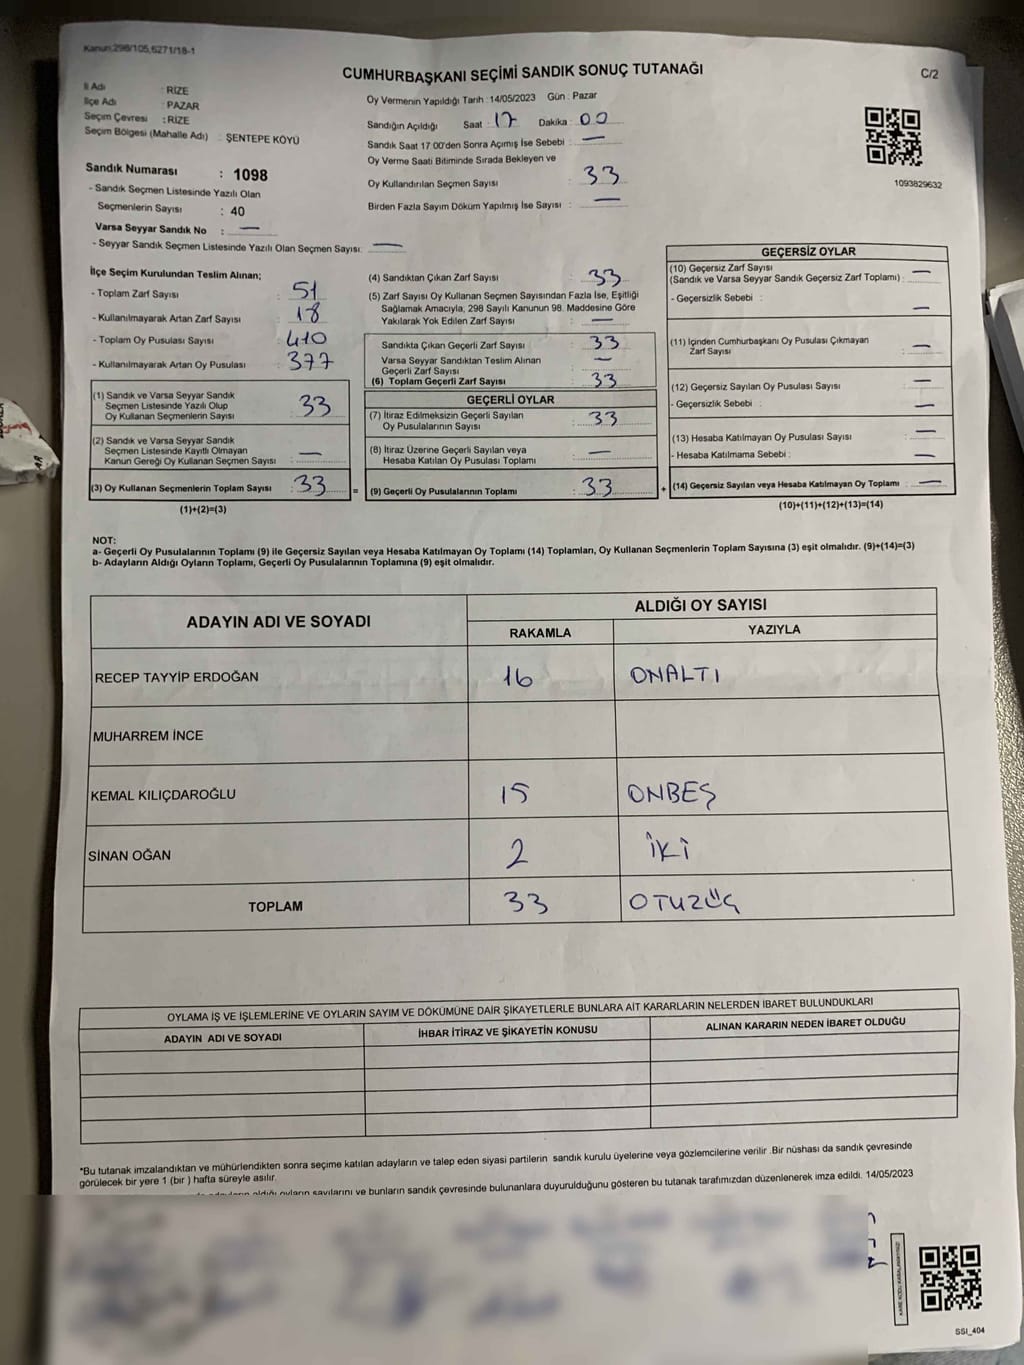 Kanun:298/105,6271/18-1
CUMHURBAŞKANI SEÇİMİ SANDIK SONUÇ TUTANAĞI
C/2
İl Adı : RİZE
İlçe Adı : PAZAR
Seçim Çevresi : RİZE
Seçim Bölgesi (Mahalle Adı) : ŞENTEPE KÖYÜ
Oy Vermenin Yapıldığı Tarih :14/05/2023 Gün : Pazar
Sandığın Açıldığı Saat : 17 Dakika : 00
Sandık Saat 17:00'den Sonra Açımış İse Sebebi : —
Oy Verme Saati Bitiminde Sırada Bekleyen ve
Oy Kullandırılan Seçmen Sayısı : 33
Birden Fazla Sayım Döküm Yapılmış İse Sayısı : —
1093829632
Sandık Numarası : 1098
- Sandık Seçmen Listesinde Yazılı Olan
Seçmenlerin Sayısı : 40
Varsa Seyyar Sandık No : —
- Seyyar Sandık Seçmen Listesinde Yazılı Olan Seçmen Sayısı: —
İlçe Seçim Kurulundan Teslim Alınan;
- Toplam Zarf Sayısı : 51
- Kullanılmayarak Artan Zarf Sayısı : 18
- Toplam Oy Pusulası Sayısı : 410
- Kullanılmayarak Artan Oy Pusulası : 377
(1) Sandık ve Varsa Seyyar Sandık
Seçmen Listesinde Yazılı Olup
Oy Kullanan Seçmenlerin Sayısı : 33
(2) Sandık ve Varsa Seyyar Sandık
Seçmen Listesinde Kayıtlı Olmayan
Kanun Gereği Oy Kullanan Seçmen Sayısı : —
(3) Oy Kullanan Seçmenlerin Toplam Sayısı : 33
(1)+(2)=(3)
(4) Sandıktan Çıkan Zarf Sayısı : 33
(5) Zarf Sayısı Oy Kullanan Seçmen Sayısından Fazla İse, Eşitliği
Sağlamak Amacıyla, 298 Sayılı Kanunun 98. Maddesine Göre
Yakılarak Yok Edilen Zarf Sayısı : —
Sandıkta Çıkan Geçerli Zarf Sayısı : 33
Varsa Seyyar Sandıktan Teslim Alınan
Geçerli Zarf Sayısı : —
(6) Toplam Geçerli Zarf Sayısı : 33
GEÇERLİ OYLAR
(7) İtiraz Edilmeksizin Geçerli Sayılan
Oy Pusulalarının Sayısı : 33
(8) İtiraz Üzerine Geçerli Sayılan veya
Hesaba Katılan Oy Pusulası Toplamı : —
= (9) Geçerli Oy Pusulalarının Toplamı : 33
GEÇERSİZ OYLAR
(10) Geçersiz Zarf Sayısı
(Sandık ve Varsa Seyyar Sandık Geçersiz Zarf Toplamı) : —
- Geçersizlik Sebebi : —
(11) İçinden Cumhurbaşkanı Oy Pusulası Çıkmayan
Zarf Sayısı : —
(12) Geçersiz Sayılan Oy Pusulası Sayısı : —
- Geçersizlik Sebebi : —
(13) Hesaba Katılmayan Oy Pusulası Sayısı : —
- Hesaba Katılmama Sebebi : —
+ (14) Geçersiz Sayılan veya Hesaba Katılmayan Oy Toplamı : —
(10)+(11)+(12)+(13)=(14)
NOT:
a- Geçerli Oy Pusulalarının Toplamı (9) ile Geçersiz Sayılan veya Hesaba Katılmayan Oy Toplamı (14) Toplamları, Oy Kullanan Seçmenlerin Toplam Sayısına (3) eşit olmalıdır. (9)+(14)=(3)
b- Adayların Aldığı Oyların Toplamı, Geçerli Oy Pusulalarının Toplamına (9) eşit olmalıdır.
ADAYIN ADI VE SOYADI ALDIĞI OY SAYISI
RAKAMLA YAZIYLA
RECEP TAYYİP ERDOĞAN 16 ONALTI
MUHARREM İNCE
KEMAL KILIÇDAROĞLU 15 ONBEŞ
SİNAN OĞAN 2 İKİ
TOPLAM 33 OTUZÜÇ
OYLAMA İŞ VE İŞLEMLERİNE VE OYLARIN SAYIM VE DÖKÜMÜNE DAİR ŞİKAYETLERLE BUNLARA AİT KARARLARIN NELERDEN İBARET BULUNDUKLARI
ADAYIN ADI VE SOYADI İHBAR İTİRAZ VE ŞİKAYETİN KONUSU ALINAN KARARIN NEDEN İBARET OLDUĞU
*Bu tutanak imzalandıktan ve mühürlendikten sonra seçime katılan adayların ve talep eden siyasi partilerin sandık kurulu üyelerine veya gözlemcilerine verilir .Bir nüshası da sandık çevresinde
görülecek bir yere 1 (bir ) hafta süreyle asılır.
adayların aldığı oyların sayılarını ve bunların sandık çevresinde bulunanlara duyurulduğunu gösteren bu tutanak tarafımızdan düzenlenerek imza edildi. 14/05/2023
SSI_404